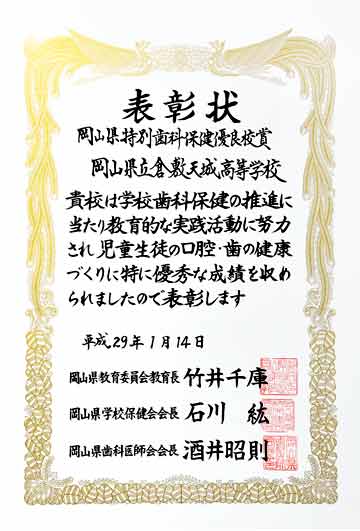 表彰状
岡山県特別歯科保健優良校賞
岡山県立倉敷天城高等学校
貴校は学校歯科保健の推進に
当たり教育的な実践活動に努力
され児童生徒の口腔・歯の健康
づくりに特に優秀な成績を収め
られましたので表彰します
平成29年1月14日
岡山県教育委員会教育長 竹井千庫
岡山県学校保健会会長 石川 紘
岡山県歯科医師会会長 酒井昭則